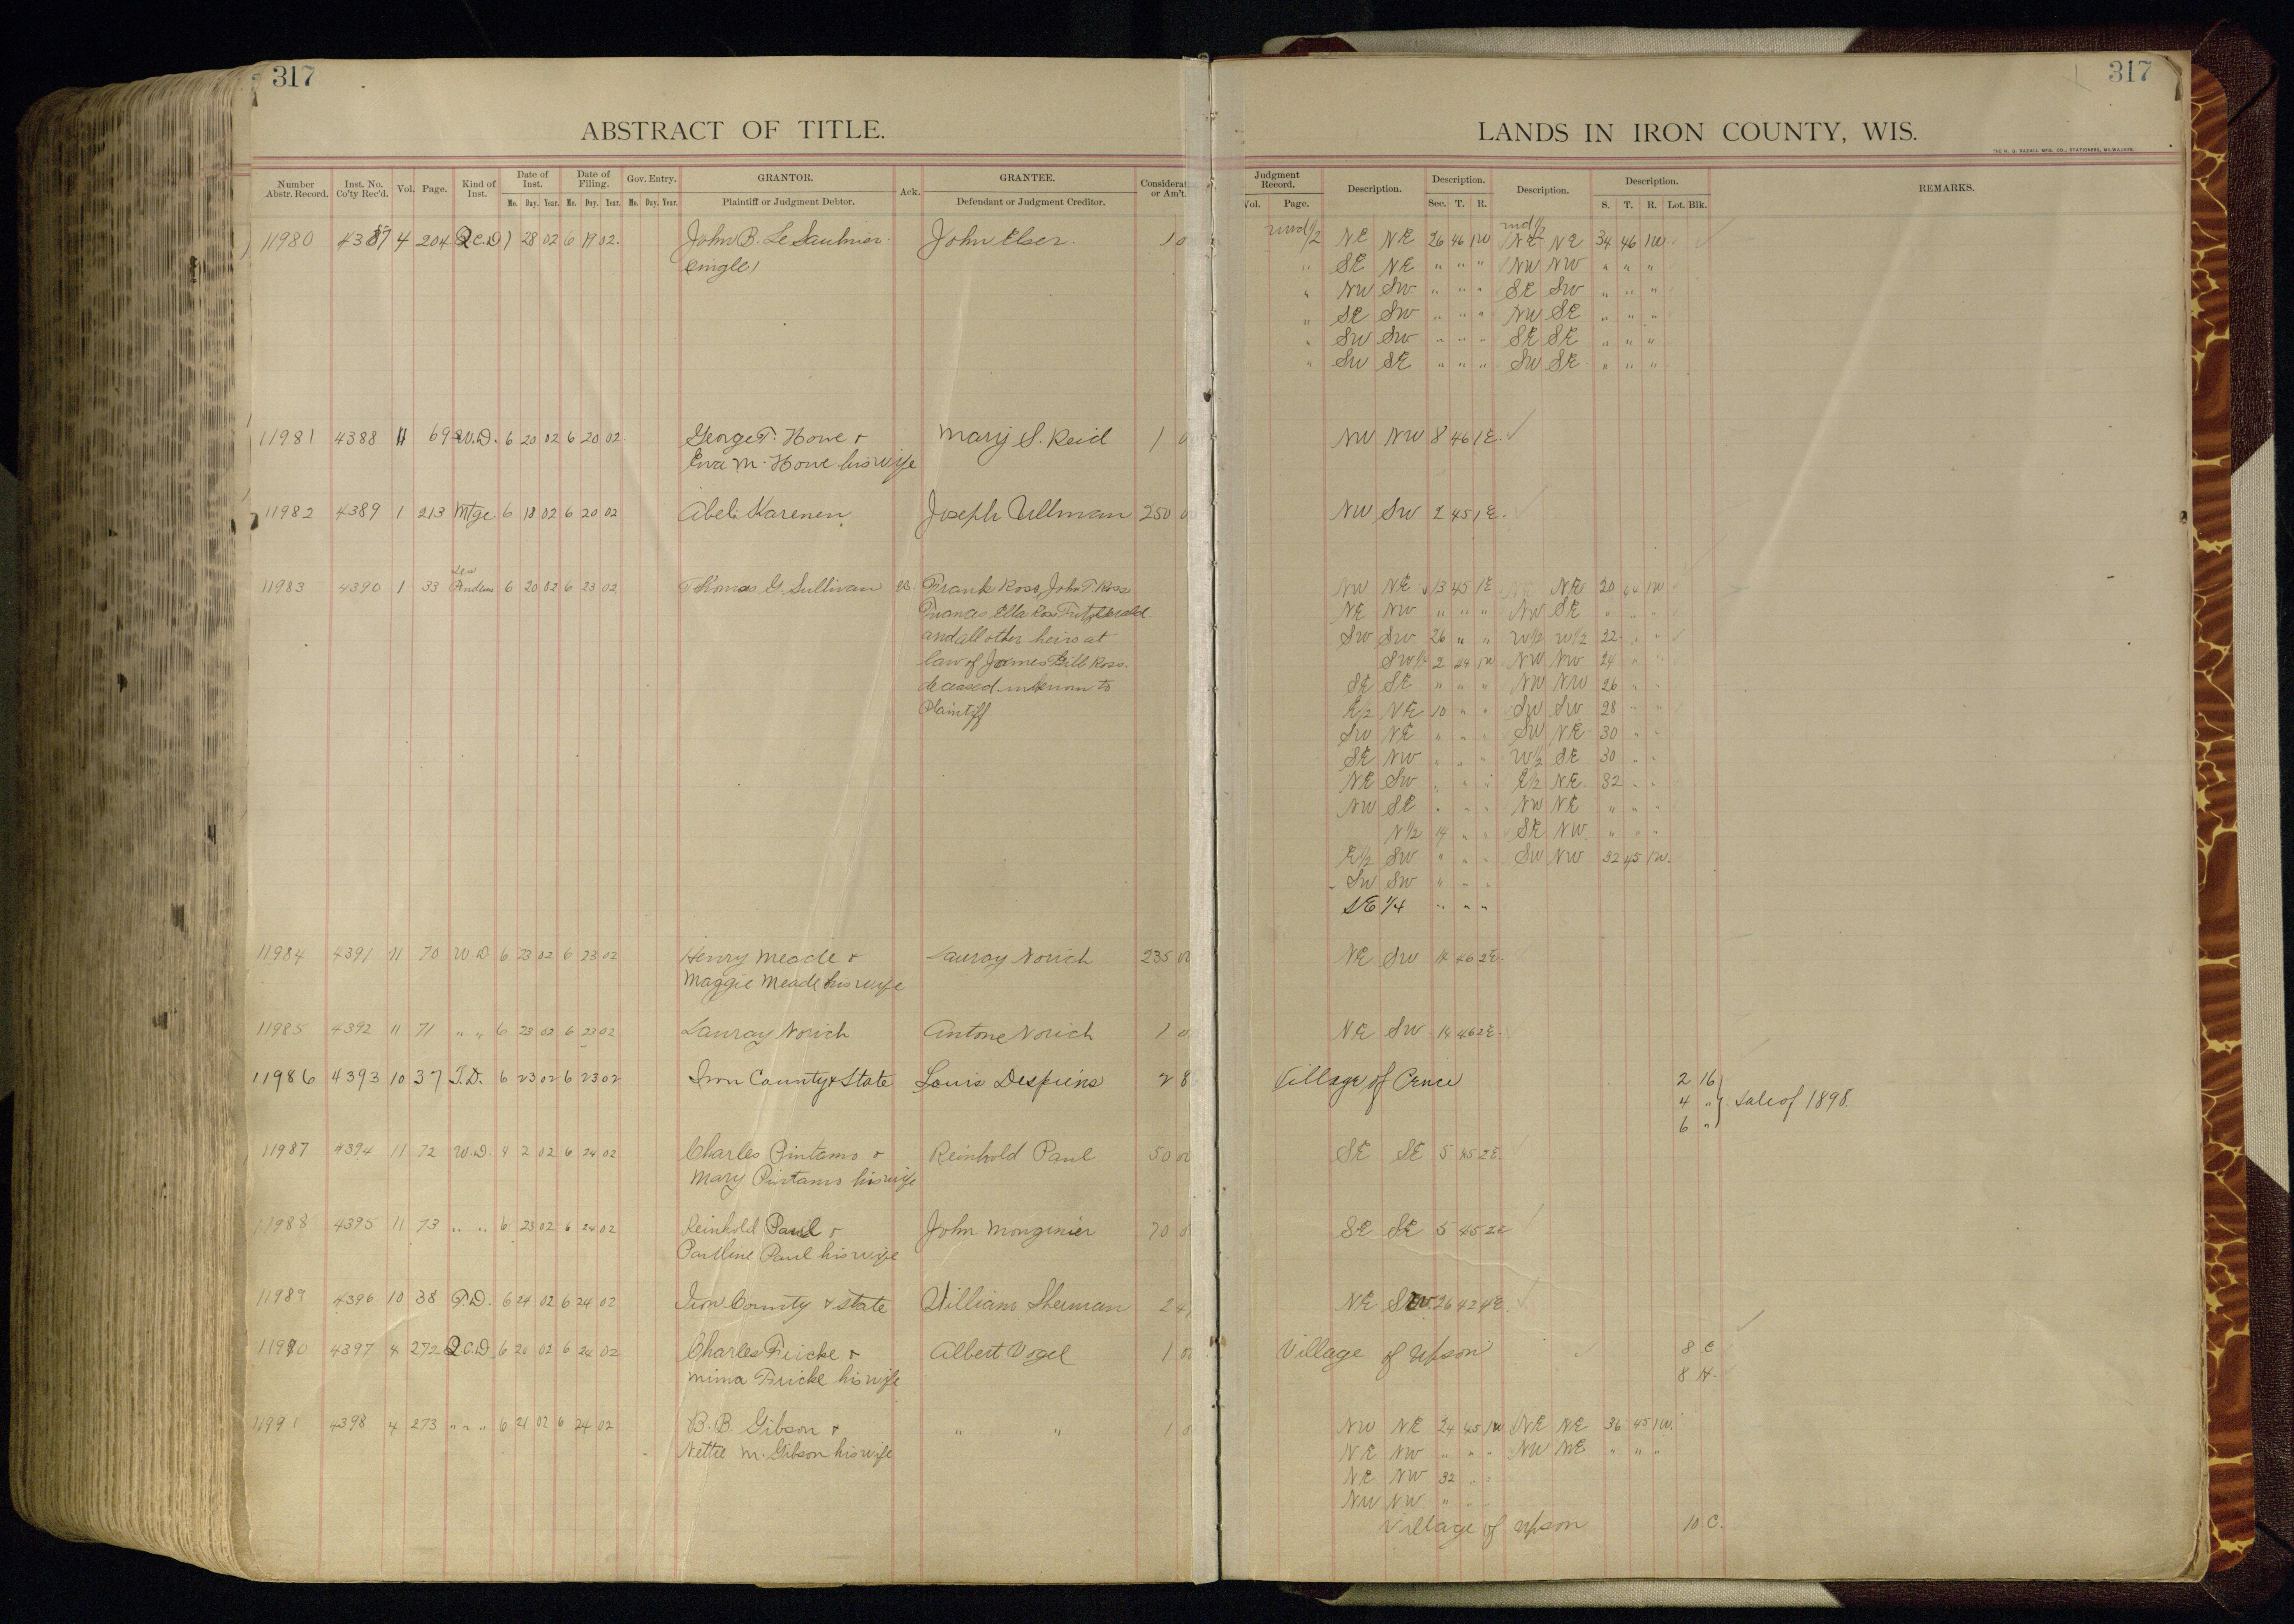 317
ABSTRACT OF TITLE.
Number Abstr. Record. Inst. No. Co'ty Rec'd. Vol. Page. Kind of Inst. Date of Inst. Mo. Day. Year. Date of Filing. Mo. Day. Year. Gov. Entry. Mo. Day. Year. GRANTOR. Plaintiff or Judgment Debtor. Ack. GRANTEE. Defendant or Judgment Creditor. Considerat or Am't.
11980 4387 4 204 Q.C.D 1 28 02 6 19 02. John B. Le Saulnier John Elser. 1 0
(single)
11981 4388 11 69 W.D. 6 20 02 6 20 02. George T. Howe & Mary S. Reid 1 0
Eva M. Howe his wife
11982 4389 1 213 Mtge 6 18 02 6 20 02 Abel Karenen Joseph Ullman 250 0
Les
11983 4390 1 33 Pendens 6 20 02 6 23 02 Thomas G. Sullivan vs. Frank Ross, John T. Ross
Frances Ella Ross Fitzgerald
and all other heirs at
law of James Ross.
deceased unknown to
Plaintiff
11984 4391 11 70 W D 6 23 02 6 23 02 Henry Meade & Lauray Norich 235 00
Maggie Meade his wife
11985 4392 11 71 " " 6 23 02 6 23 02 Lauray Norich Antone Norich 1 0
11986 4393 10 37 T.D. 6 23 02 6 23 02 Iron County & State Louis Despins 2 8
11987 4394 11 72 W.D. 4 2 02 6 24 02 Charles Pintams & Reinhold Paul 50 00
Mary Pintams his wife
11988 4395 11 73 " " 6 23 02 6 24 02 Reinhold Paul & John Monginier 70 0
Pauline Paul his wife
11989 4396 10 38 T.D. 6 24 02 6 24 02 Iron County & State William Sherman 2 4
11990 4397 4 272 Q.C.D 6 20 02 6 24 02 Charles Fricke & Albert Vogel 1 00
Mima Fricke his wife
11991 4398 4 273 " " " 6 21 02 6 24 02 B. B. Gibson & " " 1 0
Nettie M. Gibson his wife
317
LANDS IN IRON COUNTY, WIS.
Judgment Record. Vol. Page. Description. Description. Sec. T. R. Description. Description. S. T. R. Lot. Blk. REMARKS.
und 1/2 NE NE 26 46 1W und 1/2 NE NE 34 46 1W
" SE NE " " " NW NW " " "
" NW SW " " " SE SW " " "
" SE SW " " " NW SE " " "
" SW SW " " " SE SE " " "
" SW SE " " " SW SE " " "
NW NW 8 46 1E.
NW SW 2 45 1E.
NW NE 13 45 1E NE 20 44 1W
NE NW " " " NW SE " " "
SW SW 26 " " W1/2 W1/2 22 " "
SW1/4 2 44 1W NW NW 24 " "
SE SE " " " NW NW 26 " "
E1/2 NE 10 " " SW SW 28 " "
SW NE " " " SW NE 30 " "
SE NW " " " W1/2 SE 30 " "
NE SW " " " E1/2 NE 32 " "
NW SE " " " NW NE " " "
N1/2 14 " " SE NW " " "
E1/2 SW " " " SW NW 32 45 1W.
SW SW " " "
SE 1/4 " " "
NE SW 14 46 2E.
NE SW 14 46 2E.
Village of Pence 2 16
4 " } Sale of 1898.
6 "
SE SE 5 45 2E.
SE SE 5 45 2E
NE SW 26 42 4E.
Village of Upson 8 C
8 H.
NW NE 24 45 1W NE NE 36 45 1W.
NE NW " " " NW NE " " "
NE NW 32 " "
NW NW " "
Village of Upson 10 C.